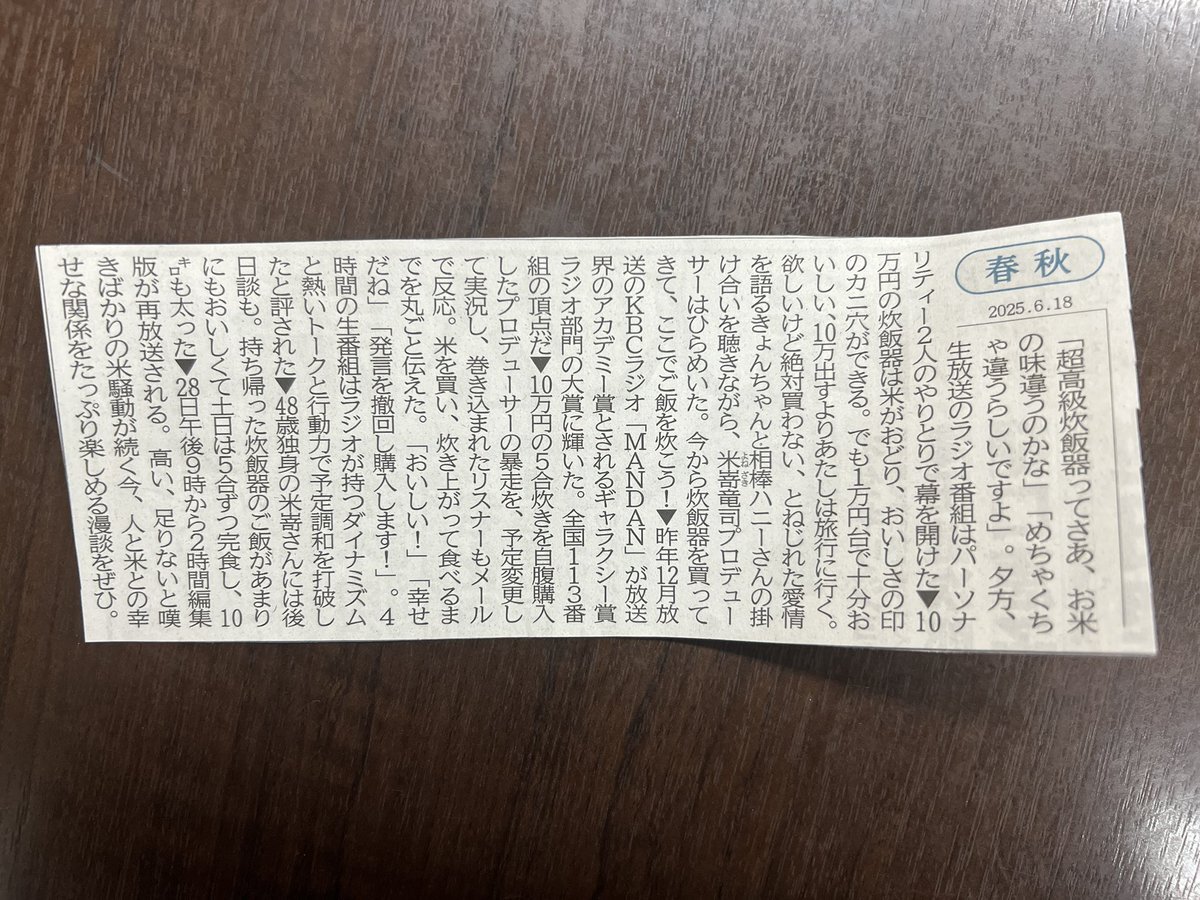 春秋
2025.6.18
「超高級炊飯器ってさあ、お米
の味違うのかな」「めちゃくち
ゃ違うらしいですよ」。夕方、
生放送のラジオ番組はパーソナ
リティー2人のやりとりで幕を開けた▼10
万円の炊飯器は米がおどり、おいしさの印
のカニ穴ができる。でも1万円台で十分お
いしい、10万出すよりあたしは旅行に行く。
欲しいけど絶対買わない、とねじれた愛情
を語るきょんちゃんと相棒ハニーさんの掛
け合いを聴きながら、米嵜竜司プロデュー
よねざき
サーはひらめいた。今から炊飯器を買って
きて、ここでご飯を炊こう!▼昨年12月放
送のKBCラジオ「MANDAN」が放送
界のアカデミー賞とされるギャラクシー賞
ラジオ部門の大賞に輝いた。全国113番
組の頂点だ▼10万円の5合炊きを自腹購入
したプロデューサーの暴走を、予定変更し
て実況し、巻き込まれたリスナーもメール
で反応。米を買い、炊き上がって食べるま
でを丸ごと伝えた。「おいしい!」「幸せ
だね」「発言を撤回し購入します!」。4
時間の生番組はラジオが持つダイナミズム
と熱いトークと行動力で予定調和を打破し
たと評された▼48歳独身の米嵜さんには後
日談も。持ち帰った炊飯器のご飯があまり
にもおいしくて土日は5合ずつ完食し、10
キロも太った▼28日午後9時から2時間編集
版が再放送される。高い、足りないと嘆
きばかりの米騒動が続く今、人と米との幸
せな関係をたっぷり楽しめる漫談をぜひ。